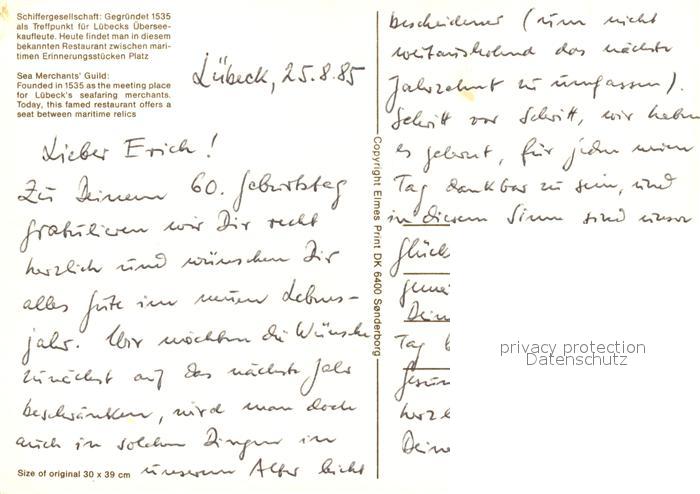 Schiffergesellschaft: Gegründet 1535
als Treffpunkt für Lübecks Übersee-
kaufleute. Heute findet man in diesem
bekannten Restaurant zwischen mari-
timen Erinnerungsstücken Platz
Sea Merchants' Guild:
Founded in 1535 as the meeting place
for Lübeck's seafaring merchants.
Today, this famed restaurant offers a
seat between maritime relics
Lübeck, 25.8.85
Lieber Erich!
Zu Deinem 60. Geburtstag
gratulieren wir Dir recht
herzlich und wünschen Dir
alles Gute im neuen Lebens-
jahr. Wir möchten die Wünsche
zunächst auf das nächste Jahr
beschränken, wird man doch
auch in solchen Dingen in
unserem Alter leicht
Size of original 30 x 39 cm
Copyright Elmes Print DK 6400 Sønderborg
bescheidener (um nicht
weitausholend das nächste
Jahrzehnt zu umfassen).
Schritt vor Schritt, wir haben
es gelernt, für jeden neuen
Tag dankbar zu sein, und
in diesem Sinn sind unser
Glück
Dein
Tag
herzl
Deine
privacy protection
Datenschutz